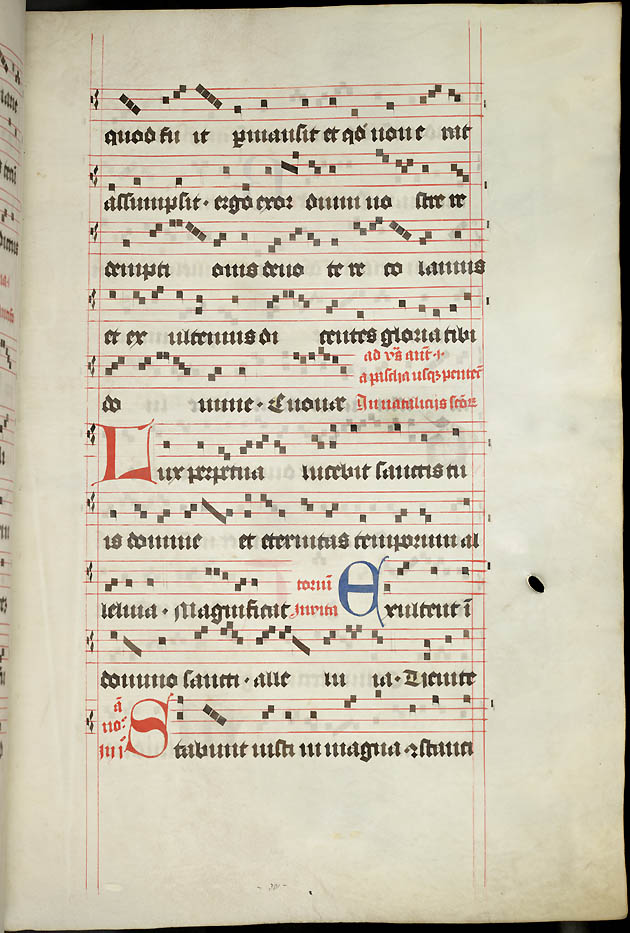 quod fu it pmansit et qd non e rat
assumpsit · ergo exor dium no stre re
dempti onis deuo te re co lamus
et ex ultemus di centes gloria tibi
do mine · Euouae ad vs ant
a pascha usq pentec
In nataliciis sctor
Lux perpetua lucebit sanctis tu
is domine et eternitas temporum al
leluia · Magnificat Inuita toriu Exultent i
domino sancti · alle lu ia · Uenite
Stabunt iusti in magna